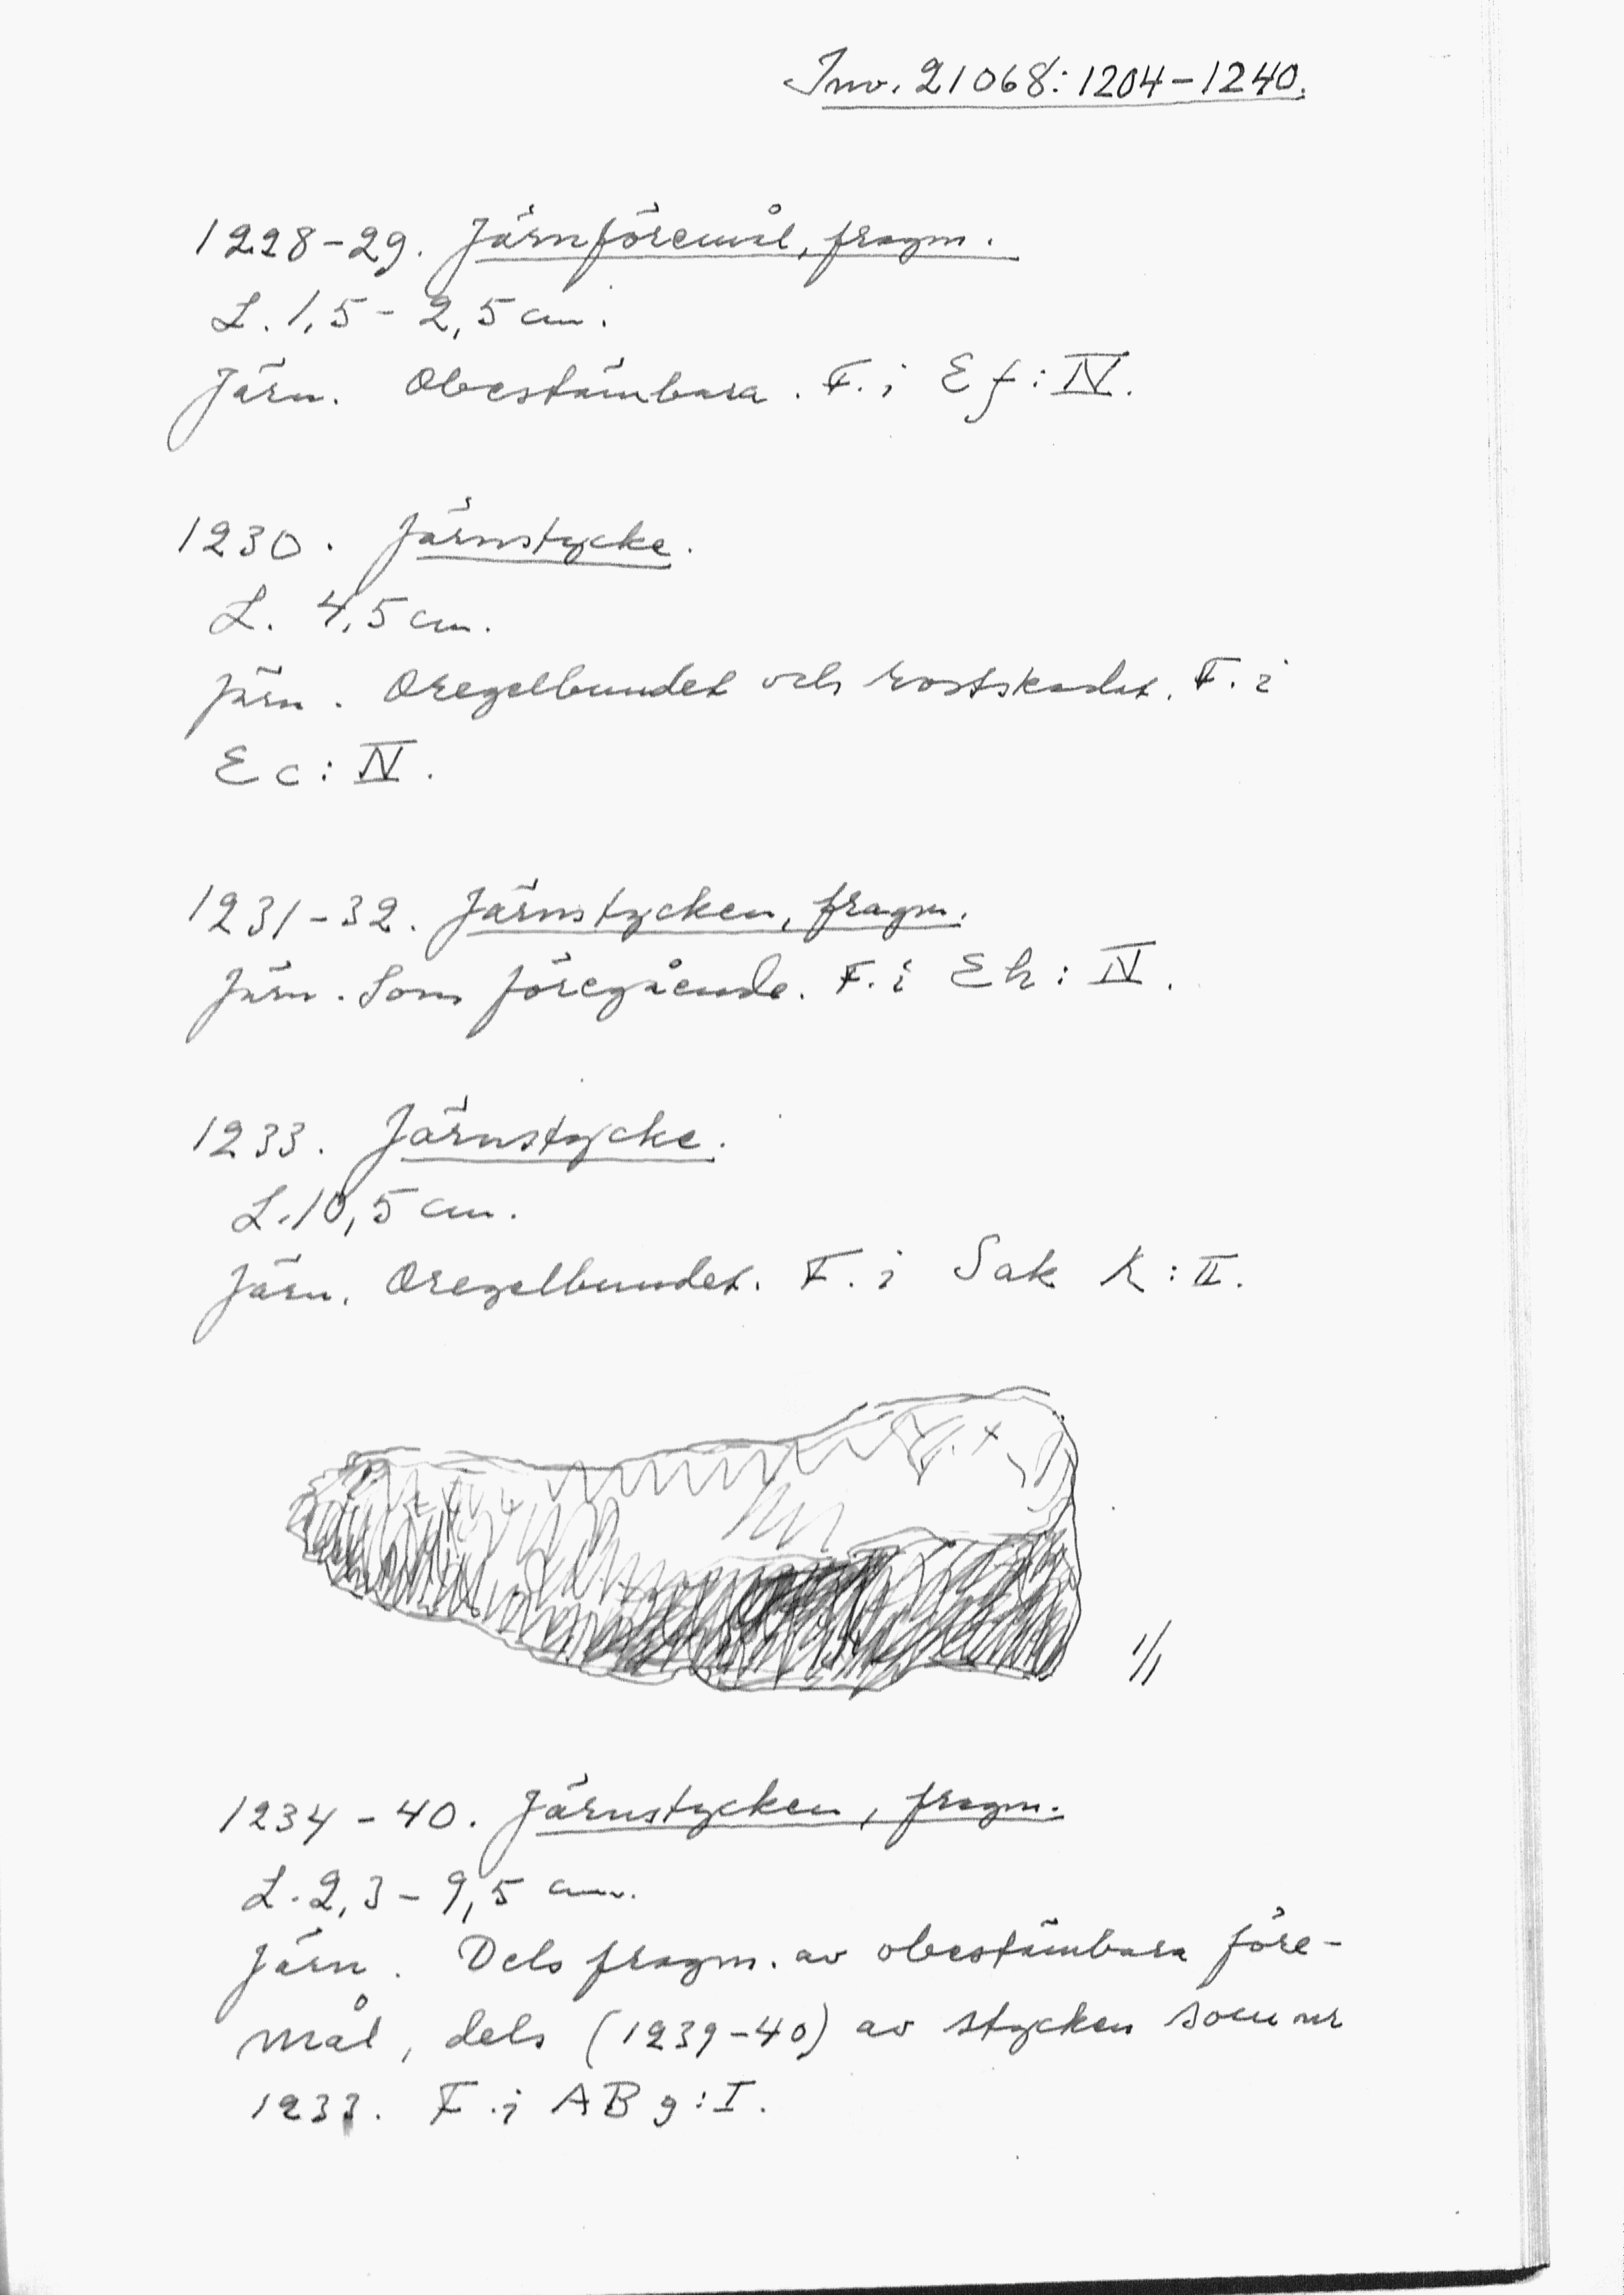 Inv. 21068:1204-1240.
1228-29. Järnföremål, fragm.
L. 1,5 - 2,5 cm.
Järn. Obestämbara. F. i Ef: IV.
1230. Järnstycke.
L. 4,5 cm.
Järn. Oregelbundet och rostskadat. F. i
Ec: IV.
1231-32. Järnstycken, fragm.
Järn. Som föregående. F. i Eh: IV.
1233. Järnstycke.
L. 10,5 cm.
Järn. Oregelbundet. F. i Sak K: II.
1/1
1234-40. Järnstycken, fragm.
L. 2,3 - 9,5 cm.
Järn. Dels fragm. av obestämbara före-
mål, dels (1239-40) av stycken som nr
1233. F. i AB g: I.